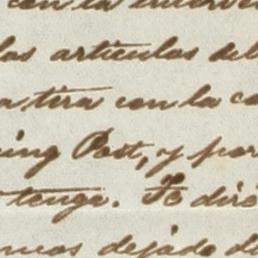 con la
los artículos del
tira con la
ing Post, y por
tengo. Te diré
mos dejado de